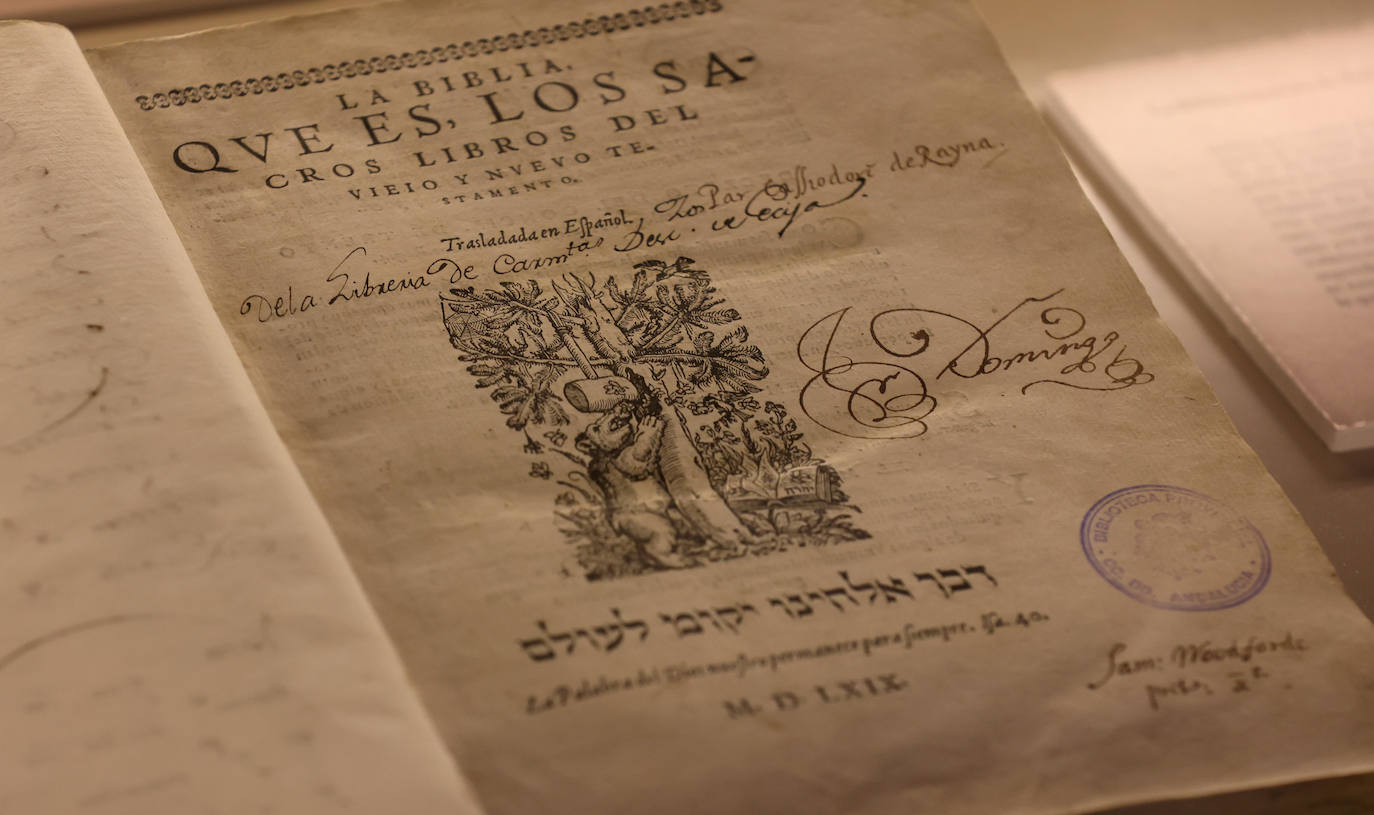 LA BIBLIA,
QVE ES, LOS SA-
CROS LIBROS DEL
VIEIO Y NVEVO TE-
STAMENTO.
Trasladada en Español, Por Cassiodoro de Rayna.
Dela Libreria De Carm.tas Des.
Domingo
יהוה
דבר אלהינו יקום לעולם
La Palabra del Dios nuestro permanece para siempre. Isa. 40.
M. D. LXIX.
BIBLIOTECA
ANDALUCIA
Sam: Woodforde